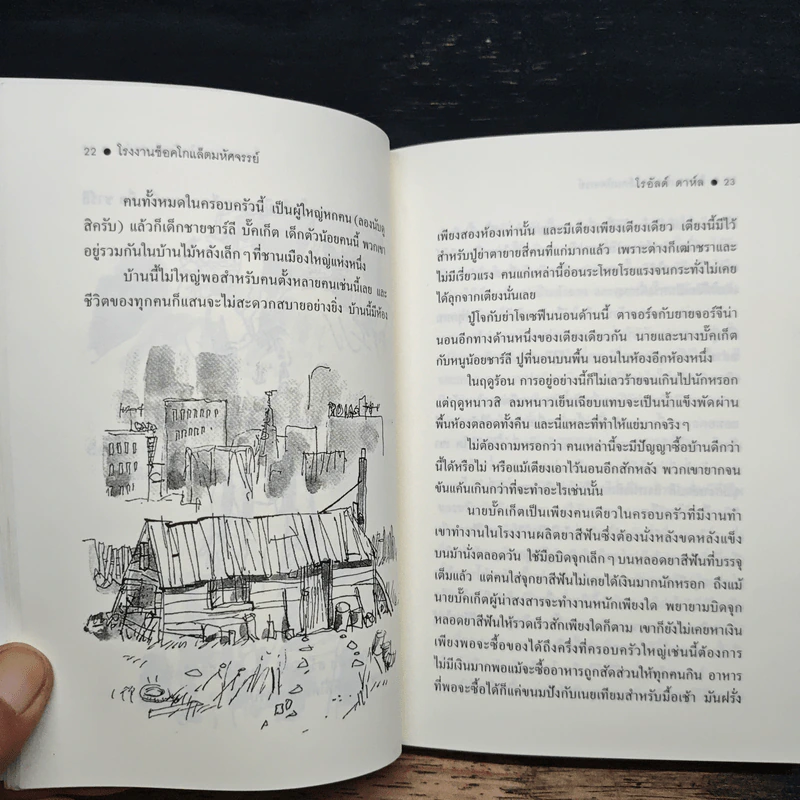 22 ● โรงงานช็อคโกแล็ตมหัศจรรย์
คนทั้งหมดในครอบครัวนี้ เป็นผู้ใหญ่หกคน (ลองนับดู
สิครับ) แล้วก็เด็กชายชาร์ลี บั๊คเก็ต เด็กตัวน้อยคนนี้ พวกเขา
อยู่รวมกันในบ้านไม้หลังเล็กๆ ที่ชานเมืองใหญ่แห่งหนึ่ง
บ้านนี้ไม่ใหญ่พอสำหรับคนตั้งหลายคนเช่นนี้เลย และ
ชีวิตของทุกคนก็แสนจะไม่สะดวกสบายอย่างยิ่ง บ้านนี้มีห้อง
โรอัลด์ ดาห์ล ● 23
เพียงสองห้องเท่านั้น และมีเตียงเพียงเตียงเดียว เตียงนี้มีไว้
สำหรับปู่ย่าตายายสี่คนที่แก่มากแล้ว เพราะต่างก็เฒ่าชราและ
ไม่มีเรี่ยวแรง คนแก่เหล่านี้อ่อนระโหยโรยแรงจนกระทั่งไม่เคย
ได้ลุกจากเตียงนั่นเลย
ปู่โจกับย่าโจเซฟีนนอนด้านนี้ ตาจอร์จกับยายจอร์จีน่า
นอนอีกทางด้านหนึ่งของเตียงเดียวกัน นายและนางบั๊คเก็ต
กับหนูน้อยชาร์ลี ปูที่นอนบนพื้น นอนในห้องอีกห้องหนึ่ง
ในฤดูร้อน การอยู่อย่างนี้ก็ไม่เลวร้ายจนเกินไปนักหรอก
แต่ฤดูหนาวสิ ลมหนาวเย็นเฉียบแทบจะเป็นน้ำแข็งพัดผ่าน
พื้นห้องตลอดทั้งคืน และนี่แหละที่ทำให้แย่มากจริงๆ
ไม่ต้องถามหรอกว่า คนเหล่านี้จะมีปัญญาซื้อบ้านดีกว่า
นี้ได้หรือไม่ หรือแม้เตียงเอาไว้นอนอีกสักหลัง พวกเขายากจน
ข้นแค้นเกินกว่าที่จะทำอะไรเช่นนั้น
นายบั๊คเก็ตเป็นเพียงคนเดียวในครอบครัวที่มีงานทำ
เขาทำงานในโรงงานผลิตยาสีฟันซึ่งต้องนั่งหลังขดหลังแข็ง
บนม้านั่งตลอดวัน ใช้มือบิดจุกเล็กๆ บนหลอดยาสีฟันที่บรรจุ
เต็มแล้ว แต่คนใส่จุกยาสีฟันไม่เคยได้เงินมากนักหรอก ถึงแม้
นายบั๊คเก็ตผู้น่าสงสารจะทำงานหนักเพียงใด พยายามบิดจุก
หลอดยาสีฟันให้รวดเร็วสักเพียงใดก็ตาม เขาก็ยังไม่เคยหาเงิน
เพียงพอจะซื้อของได้ถึงครึ่งที่ครอบครัวใหญ่เช่นนี้ต้องการ
ไม่มีเงินมากพอแม้จะซื้ออาหารถูกสัดส่วนให้ทุกคนกิน อาหาร
ที่พอจะซื้อได้ก็แค่ขนมปังกับเนยเทียมสำหรับมื้อเช้า มันฝรั่ง